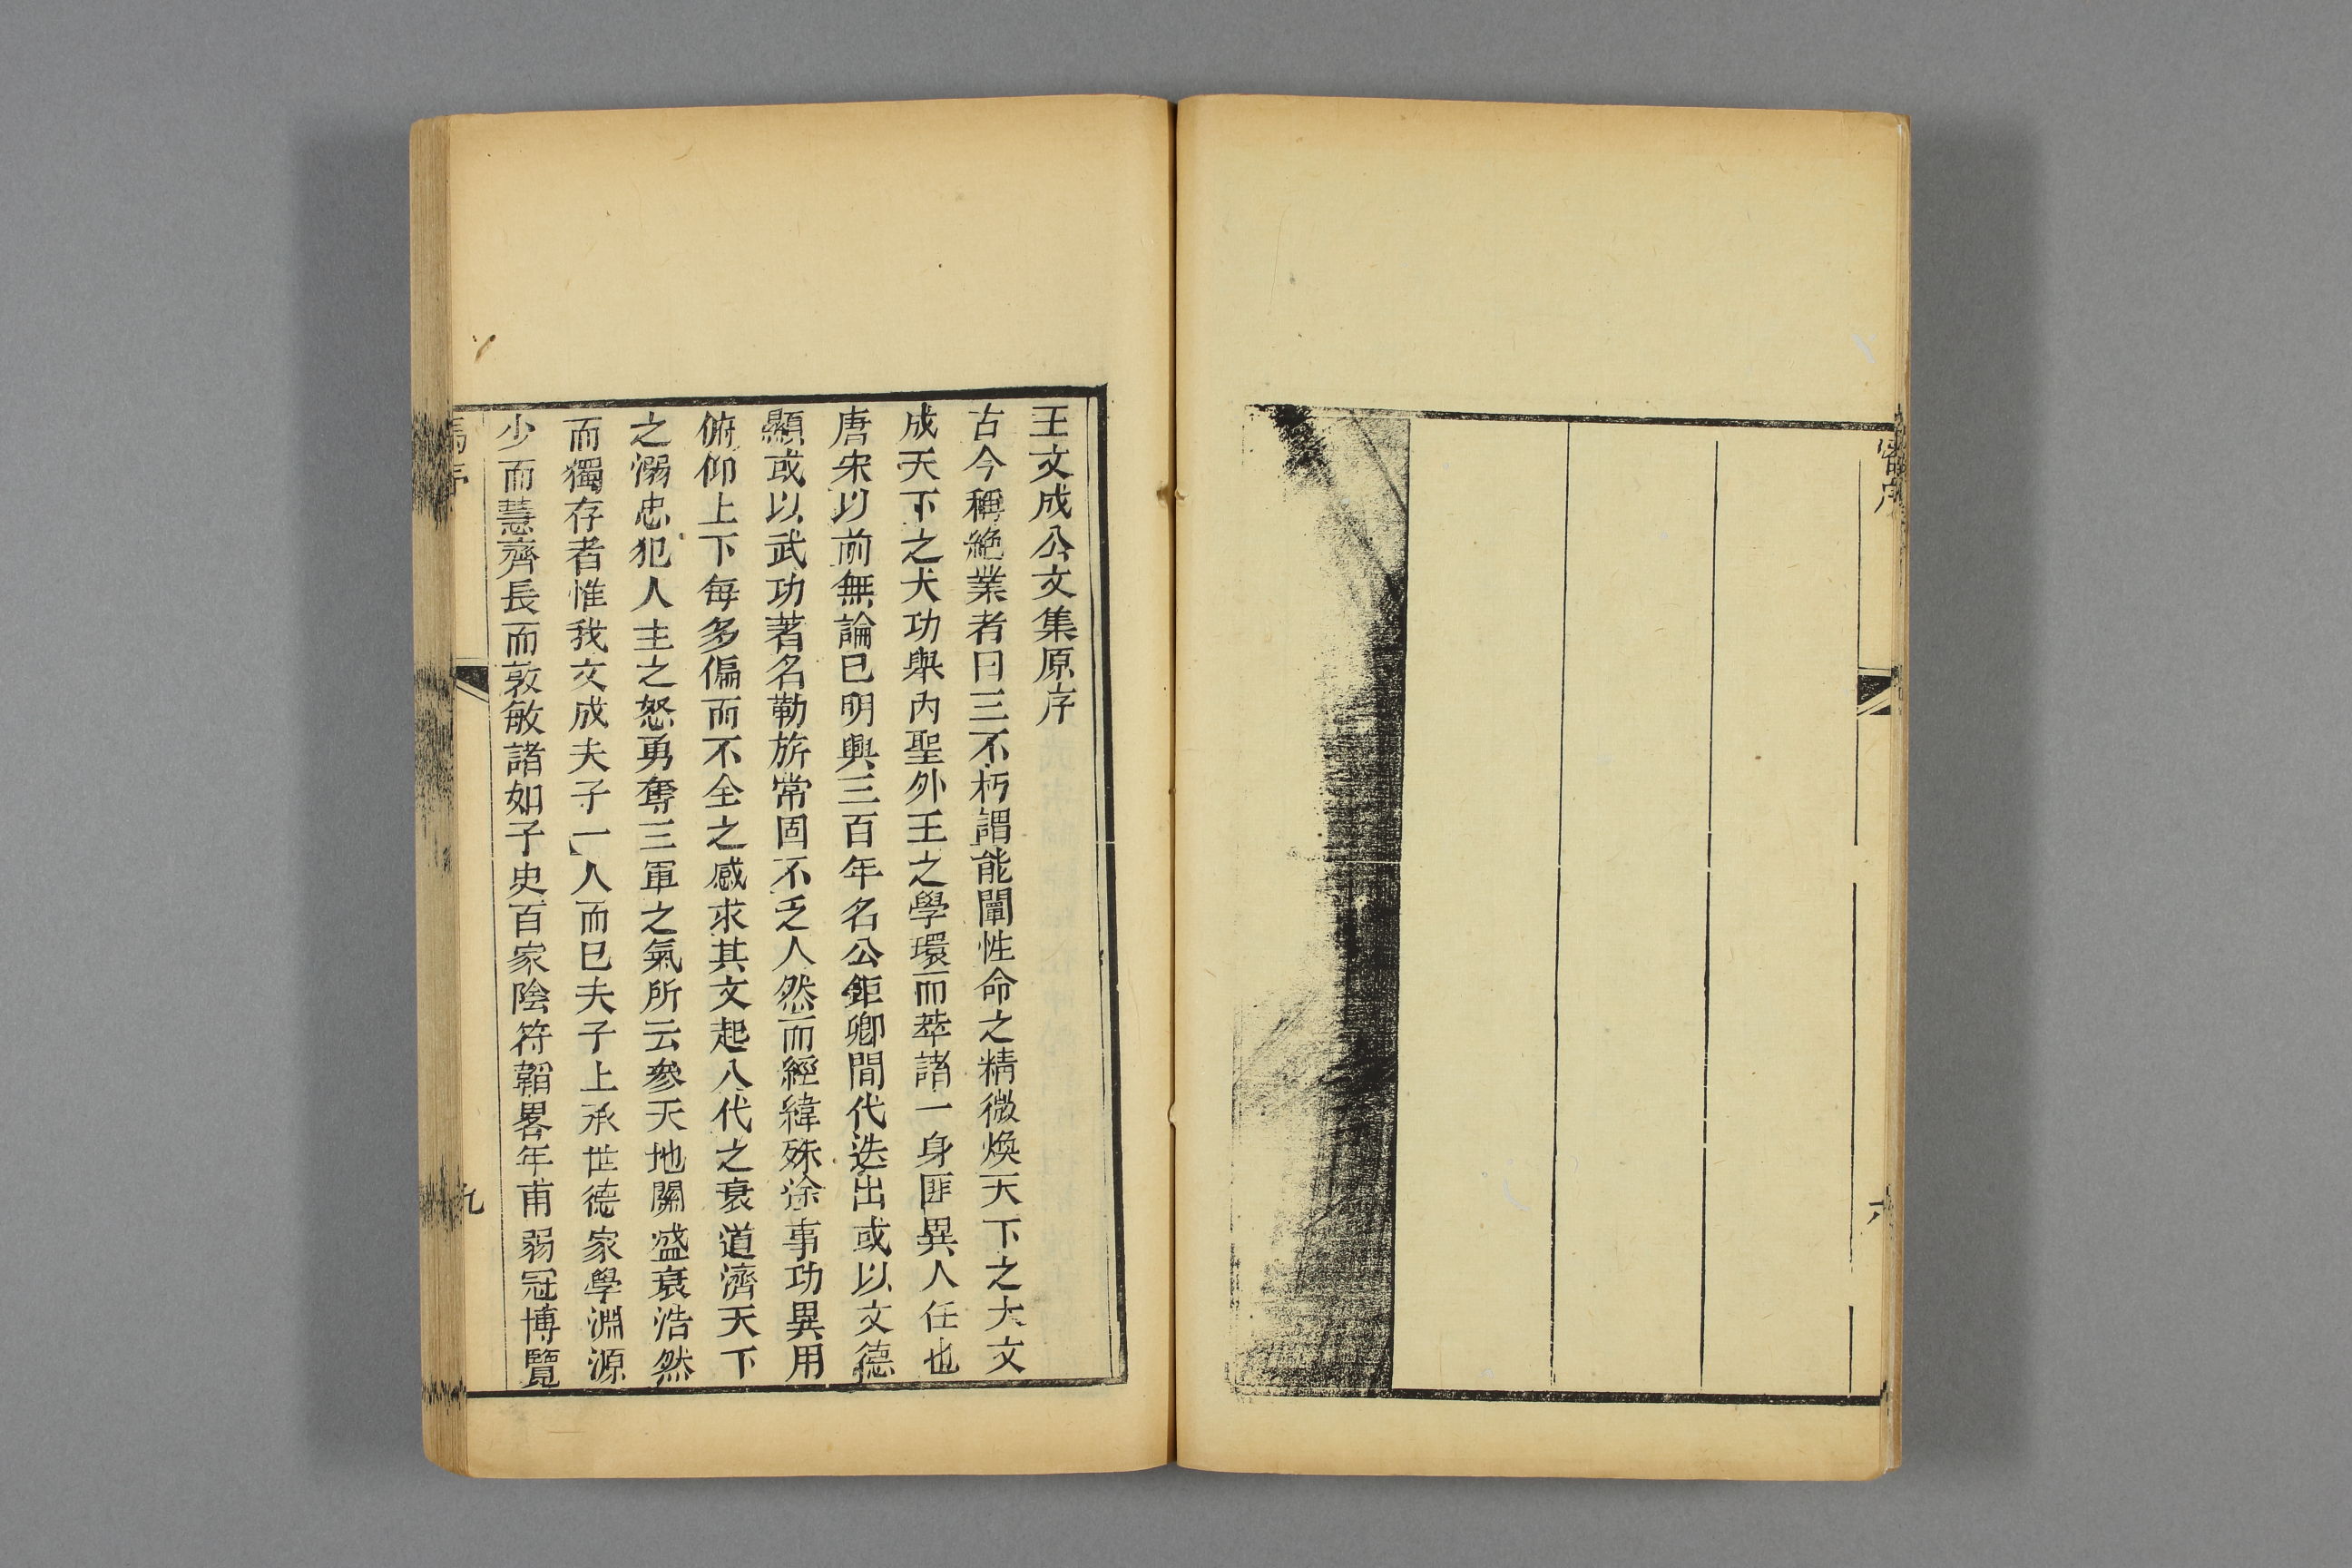 王文成公文集原序
古今稱絶業者曰三不朽謂能闡性命之精微煥天下之大文
成天下之大功舉内聖外王之學環而萃諸一身匪異人任也
唐宋以前無論已明興三百年名公鉅卿間代迭出或以文德
顯或以武功著名勒旂常固不乏人然而經緯殊途事功異用
俯仰上下每多偏而不全之感求其文起八代之衰道濟天下
之溺忠犯人主之怒勇奪三軍之氣所云參天地關盛衰浩然
而獨存者惟我文成夫子一人而已夫子上承世德家學淵源
少而慧齊長而敦敏諸如子史百家陰符韜畧年甫弱冠博覽
序
九